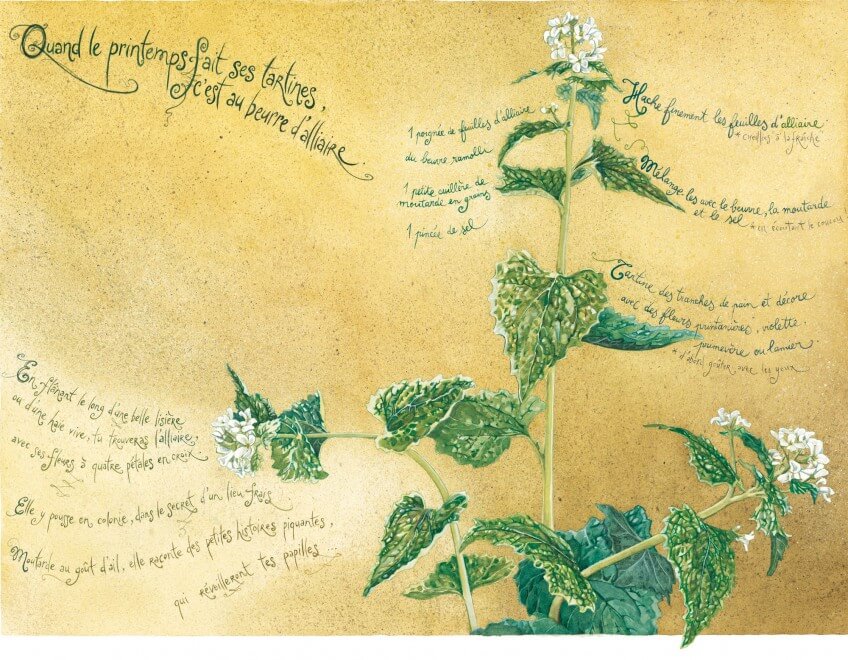 Quand le printemps fait ses tartines,
c'est au beurre d'alliaire.
1 poignée de feuilles d'alliaire
du beurre ramolli
1 petite cuillère de
moutarde en grains
1 pincée de sel
Hache finement les feuilles d'alliaire.
* cueillies à la fraîche
Mélange les avec le beurre, la moutarde
et le sel * en écoutant le coucou !
Tartine des tranches de pain et décore
avec des fleurs printanières, violette,
primevère ou lamier.
* d'abord goûter avec les yeux
En flânant le long d'une belle lisière
ou d'une haie vive, tu trouveras l'alliaire,
avec ses fleurs à quatre pétales en croix.
Elle y pousse en colonie, dans le secret d'un lieu frais.
Moutarde au goût d'ail, elle raconte des petites histoires piquantes,
qui réveilleront tes papilles...